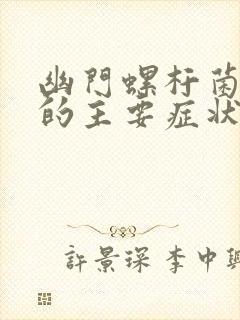 幽門螺杆菌
的主要症狀
許景琛 李中興